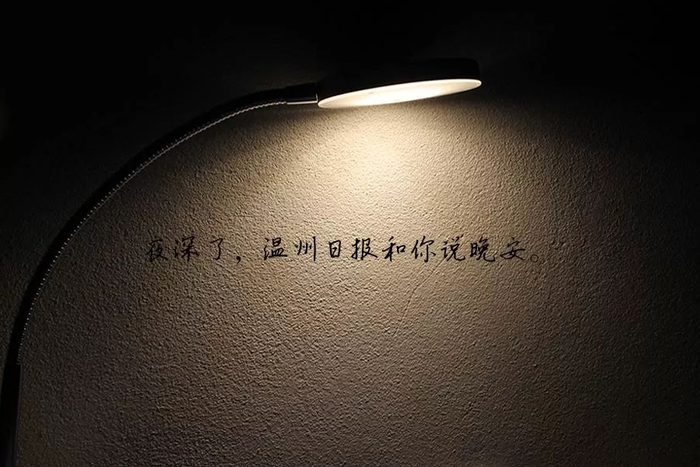 夜深了，温州日报和你说晚安。